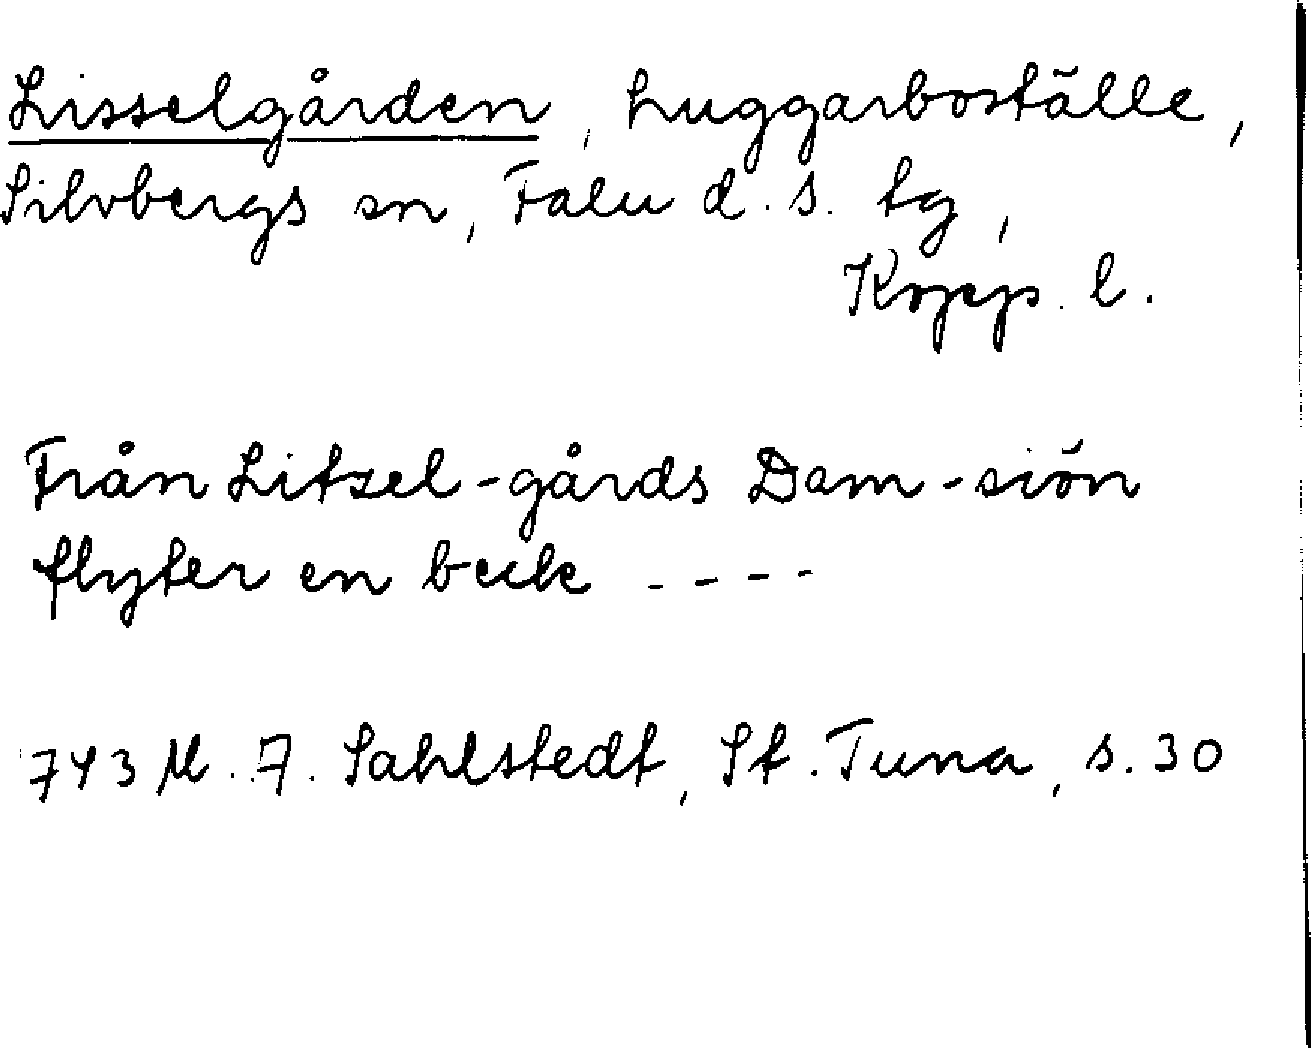 Lisselgården, huggarboställe,
Silvbergs sn, Falu d. s. tg,
Kopp. l.
Från Litzel-gårds Dam-siön
flyter en beck ----
743 M. A. Sahlstedt, St. Tuna, s. 30